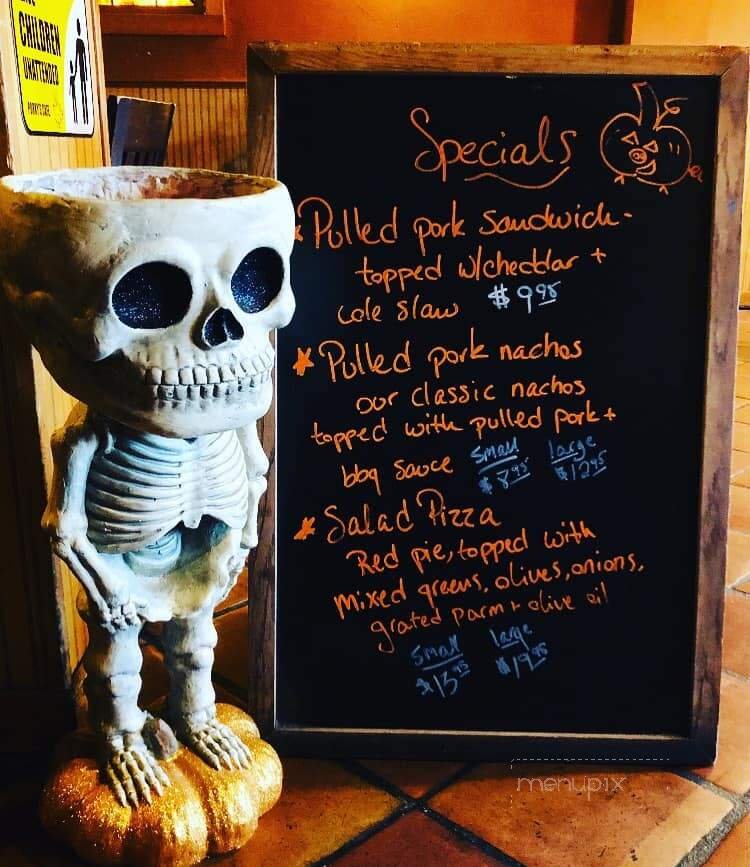 CHILDREN
UNATTENDED
Specials
* Pulled pork Sandwich -
topped w/cheddar +
cole slaw $9.95
* Pulled pork nachos
our classic nachos
topped with pulled pork +
bbq sauce small large
$8.95 $12.95
* Salad Pizza
Red pie, topped with
mixed greens, olives, onions,
grated parm + olive oil
small large
$13.95 $19.95
menupix